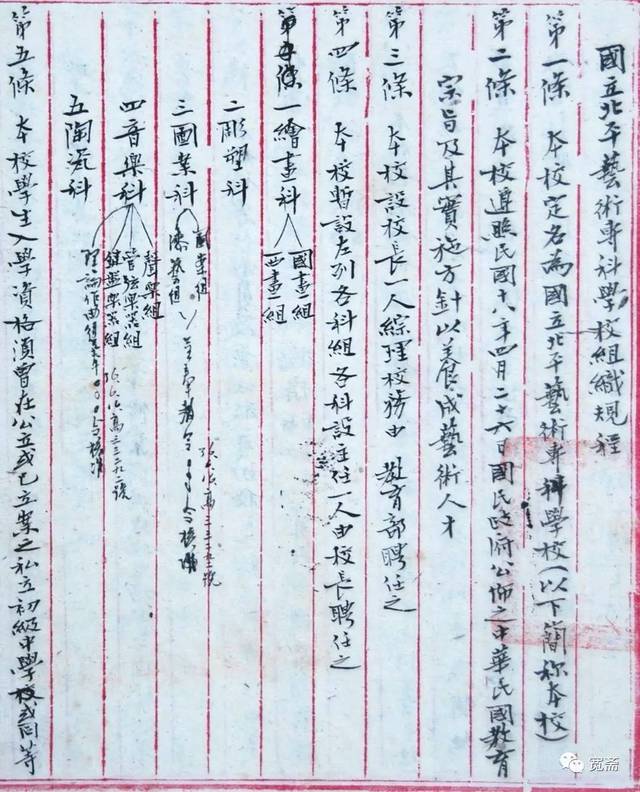 國立北平藝術專科學校組織規程
第一條 本校定名為國立北平藝術專科學校(以下簡称本校)
第二條 本校遵照民國十八年四月二十六日國民政府公佈之中華民國教育
宗旨及其實施方針以養成藝術人才
第三條 本校設校長一人綜理校務由教育部聘任之
第四條 本校暫設左列各科組各科設主任一人由校長聘任之
一繪畫科
國畫組
西畫組
二彫塑科
三圖案科
圖案組
四音樂科
聲樂組
管弦樂器組
鍵盤樂器組
理論作曲組
五陶瓷科
第五條 本校學生入學資格須曾在公立或已立案之私立初級中學校或同等
宽斋